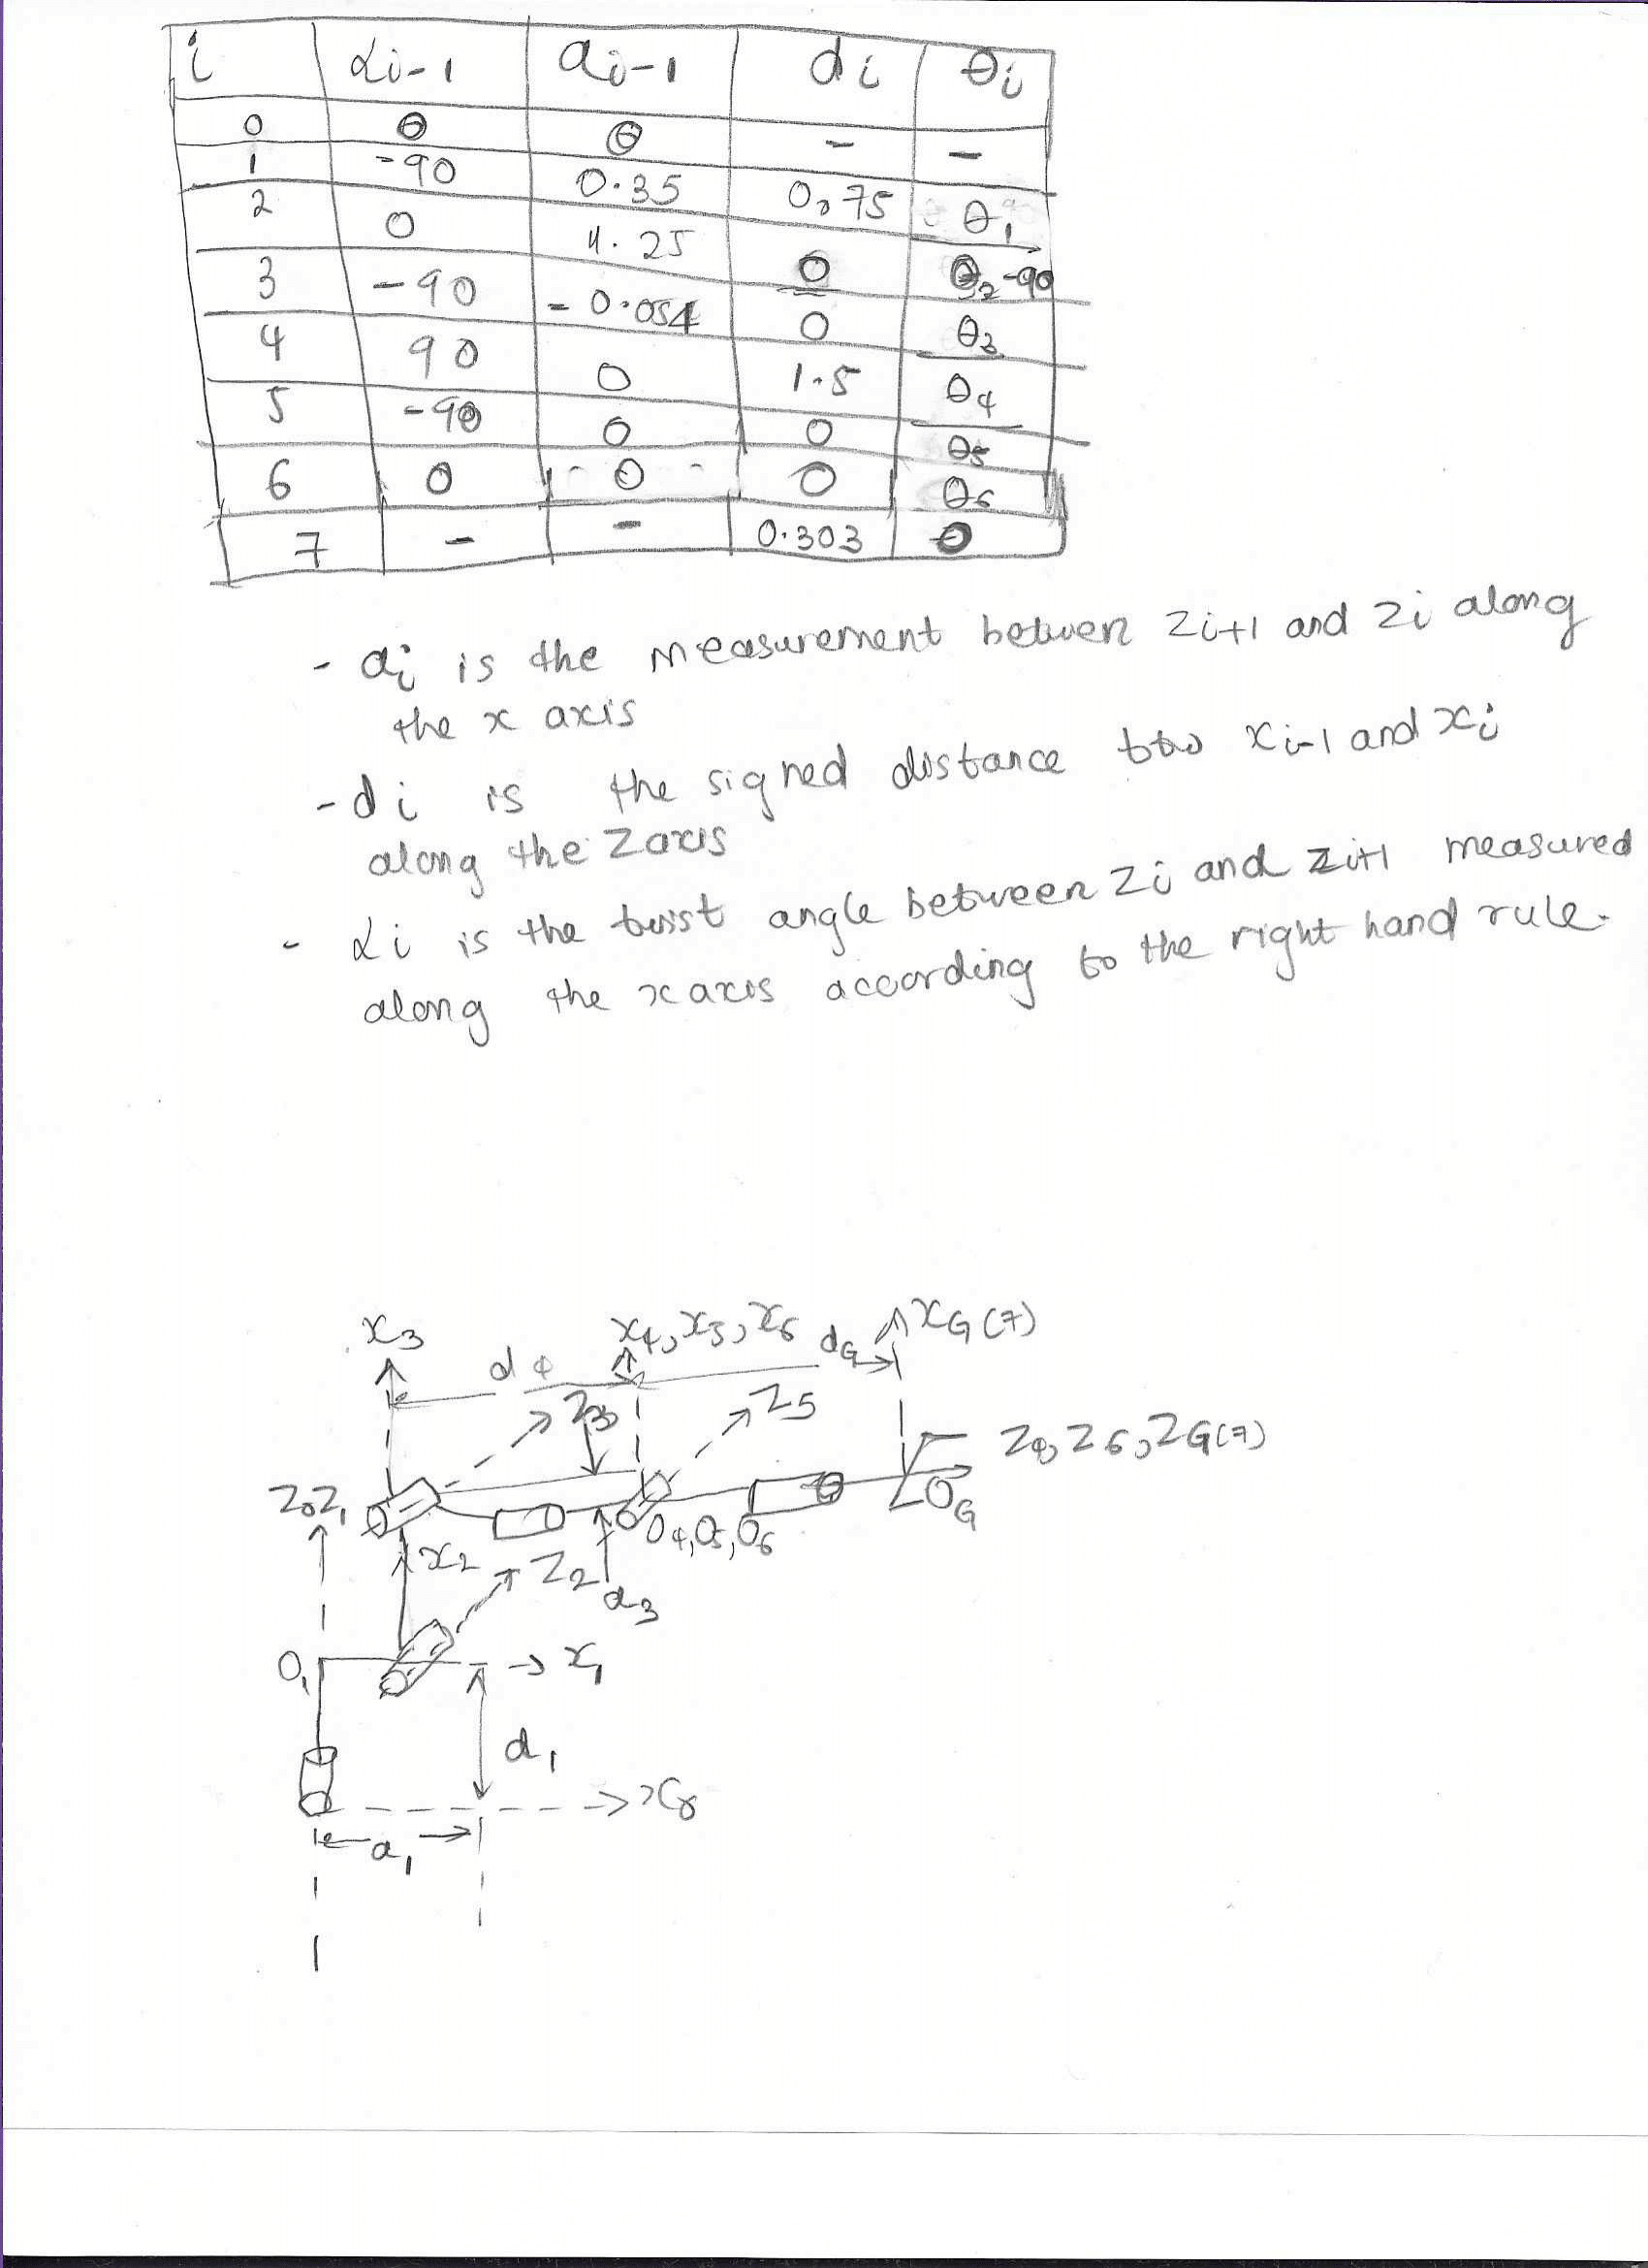 i αi-1 ai-1 di θi
0 0 0 - -
1 -90 0.35 0.75 θ1
2 0 1.25 0 θ2-90
3 -90 -0.054 0 θ3
4 90 0 1.5 θ4
5 -90 0 0 θ5
6 0 0 0 θ6
7 - - 0.303 0
- ai is the measurement between Zi+1 and Zi along
the x axis
- di is the signed distance xi-1 and xi
along the Z axis
- αi is the twist angle between Zi and Zi+1 measured
along the x axis according to the right hand rule.
x3 x4, x5, x6 dG xG(7)
d4
Z3 Z5
Z4, Z6, ZG(7)
Z0Z1 OG
O4, O5, O6
x2 Z2
a3
O1 x1
d1
x0
a1